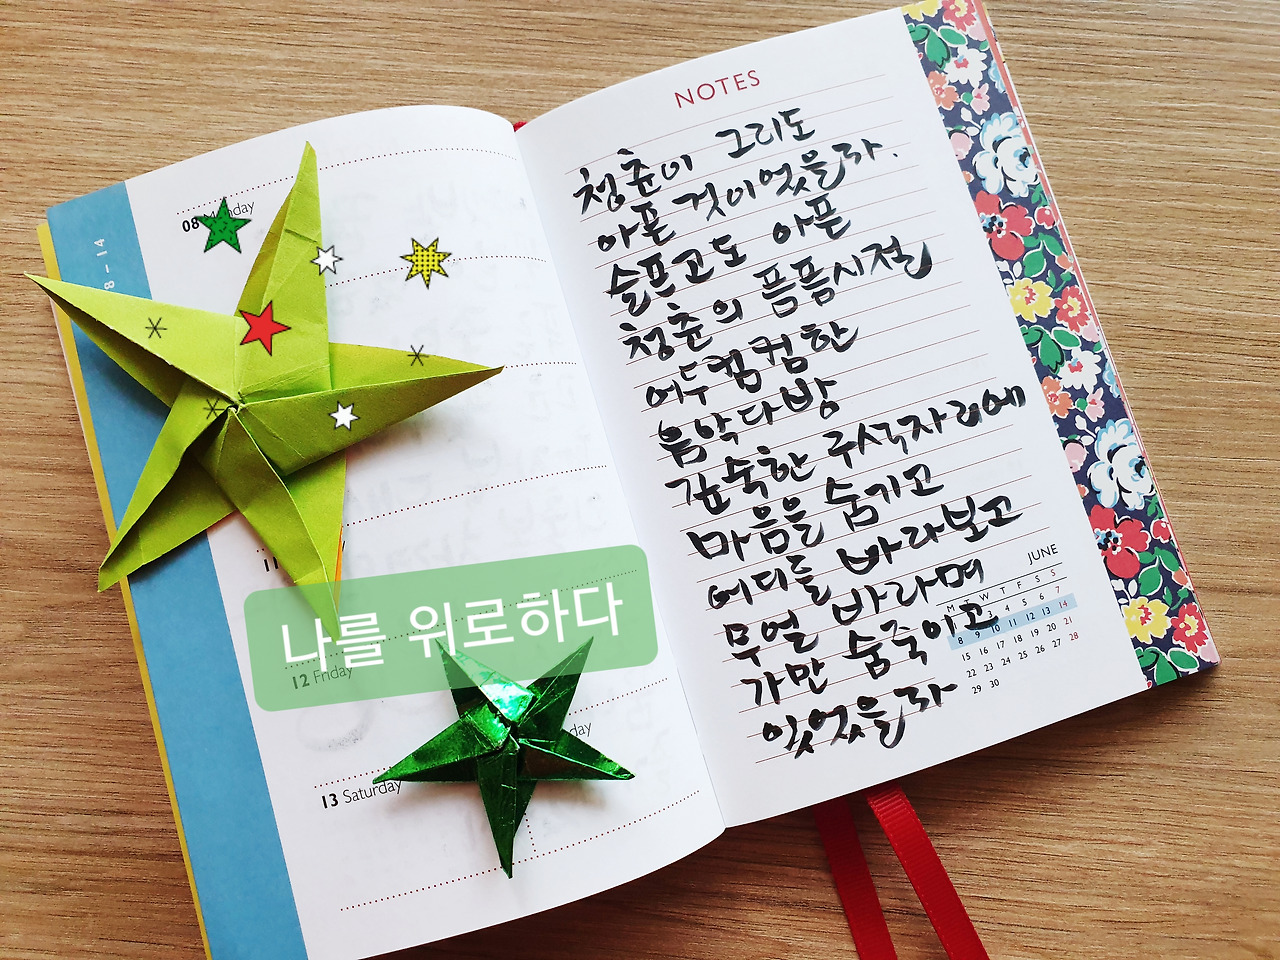 8 – 14
08
12 Friday
13 Saturday
나를 위로하다
NOTES
청춘이 그리도
아픈 것이었을라.
슬프고도 아픈
청춘의 픔픔시절
어두컴컴한
음악다방
깊숙한 구석자리에
마음을 숨기고
어디를 바라보고
무얼 바라며
가만 숨죽이고
있었을라
JUNE
M T W T F S S
1 3 4 5 6 7
8 9 10 11 12 13 14
15 16 17 18 19 20 21
22 23 24 25 26 27 28
29 30